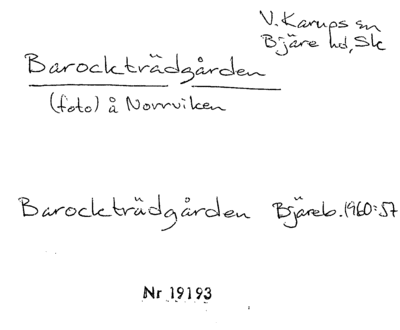 V. Karups sn
Bjäre hd, Sk
Barockträdgården
(foto) å Norrviken
Barockträdgården Bjäreb. 1960:57
Nr 19193